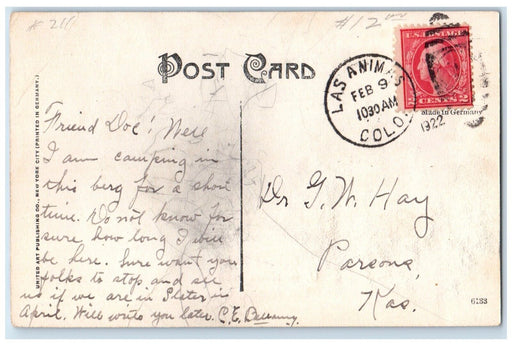 # 211
#12
POST CARD
LAS ANIMAS
FEB 9
1030AM
COLO.
1922
U.S. POSTAGE
2 CENTS 2
Made in Germany
UNITED ART PUBLISHING CO., NEW YORK CITY (PRINTED IN GERMANY.)
Friend Doc! Well
I am camping in
this berg for a short
time. Do not know for
sure how long I will
be here. Sure want you
folks to stop and see
us if we are in in
April. Will write you later. C.E.
Dr G. W. Hay
Parsons,
Kas.
6133